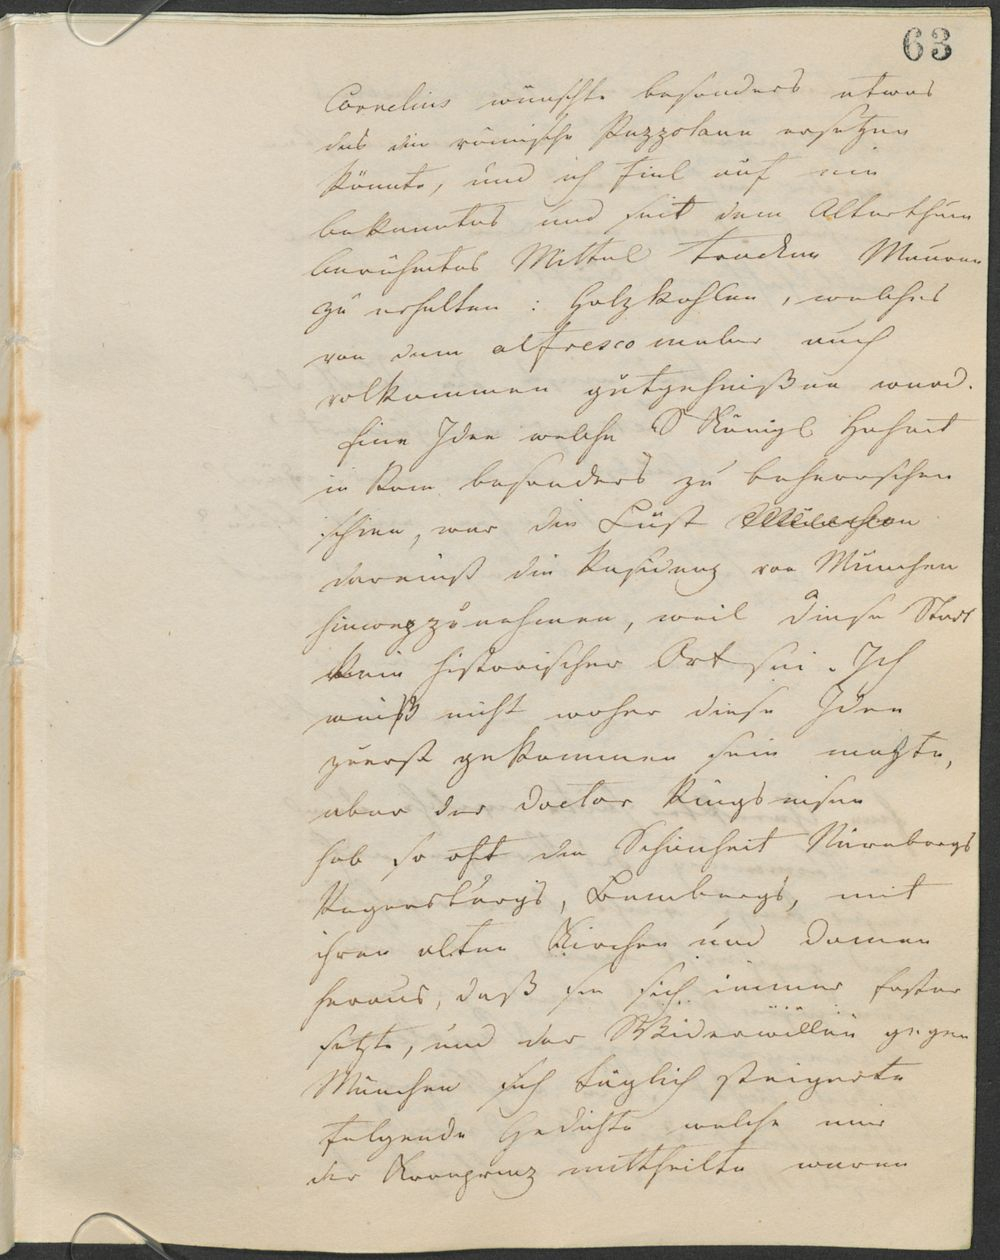 63
Cornelius wünschte besonders etwas
das die römische Puzzolane ersetzen
könnte, und ich fiel auf ein
bekanntes und seit dem Alterthum
berühmtes Mittel trockne Mauren
zu erhalten: Holzkohlen, welches
von dem alfresco maler auch
volkommen gutgeheißen ward.
Eine Idee welche S Königl Hoheit
in Rom besonders zu beherrschen
schien, war die Lust München
dereinst die Residenz von München
hinwegzunehmen, weil diese Stadt
kein historischer Ort sei. Ich
weiß nicht woher diese Idee
zuerst gekommen sein mogte,
aber der Doctor Ringseisen
hob so oft die Schönheit Nürnbergs
Regensburgs, Bambergs, mit
ihren alten Kirchen und Domen
heraus, daß sie sich immer fester
setzte, und der Widerwillen gegen
München sich täglich steigerte
folgende Gedichte welche mir
der Kronprinz mittheilte waren